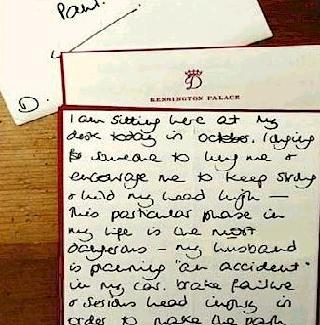 Paul.
D.
D
KENSINGTON PALACE
I am sitting here at my
desk today in October, longing
for someone to hug me &
encourage me to keep strong
& hold my head high —
This particular phase in
my life is the most
dangerous – my husband
is planning "an accident"
in my car. brake failure
& serious head injury in
order to make the path